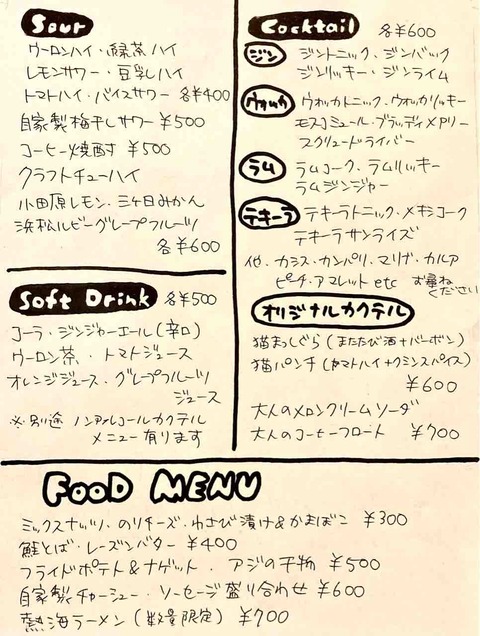 Sour
ウーロンハイ・緑茶ハイ
レモンサワー・豆乳ハイ
トマトハイ・バイスサワー 各¥400
自家製梅干しサワー ¥500
コーヒー焼酎 ¥500
クラフトチューハイ
小田原レモン・三ヶ日みかん
浜松ルビーグレープフルーツ
各¥600
Soft Drink 各¥500
コーラ・ジンジャーエール(辛口)
ウーロン茶・トマトジュース
オレンジジュース・グレープフルーツ
ジュース
※別途 ノンアルコールカクテル
メニュー有ります
Cocktail 各¥600
ジン ジントニック・ジンバック
ジンリッキー・ジンライム
ウォッカ ウォッカトニック・ウォッカリッキー
モスコミュール・ブラッディメアリー
スクリュードライバー
ラム ラムコーク・ラムリッキー
ラムジンジャー
テキーラ テキーラトニック・メキシコーク
テキーラサンライズ
他・カシス・カンパリ・マリブ・カルア
ピーチ・アマレット etc お尋ね
ください
オリジナルカクテル
猫まっしぐら(またたび酒+バーボン)
猫パンチ(トマトハイ+クミンスパイス)
¥600
大人のメロンクリームソーダ
大人のコーヒーフロート ¥700
FOOD MENU
ミックスナッツ・のりチーズ・わさび漬け&かまぼこ ¥300
鮭とば・レーズンバター ¥400
フライドポテト&ナゲット・アジの干物 ¥500
自家製チャーシュー・ソーセージ盛り合わせ ¥600
熱海ラーメン(数量限定) ¥700